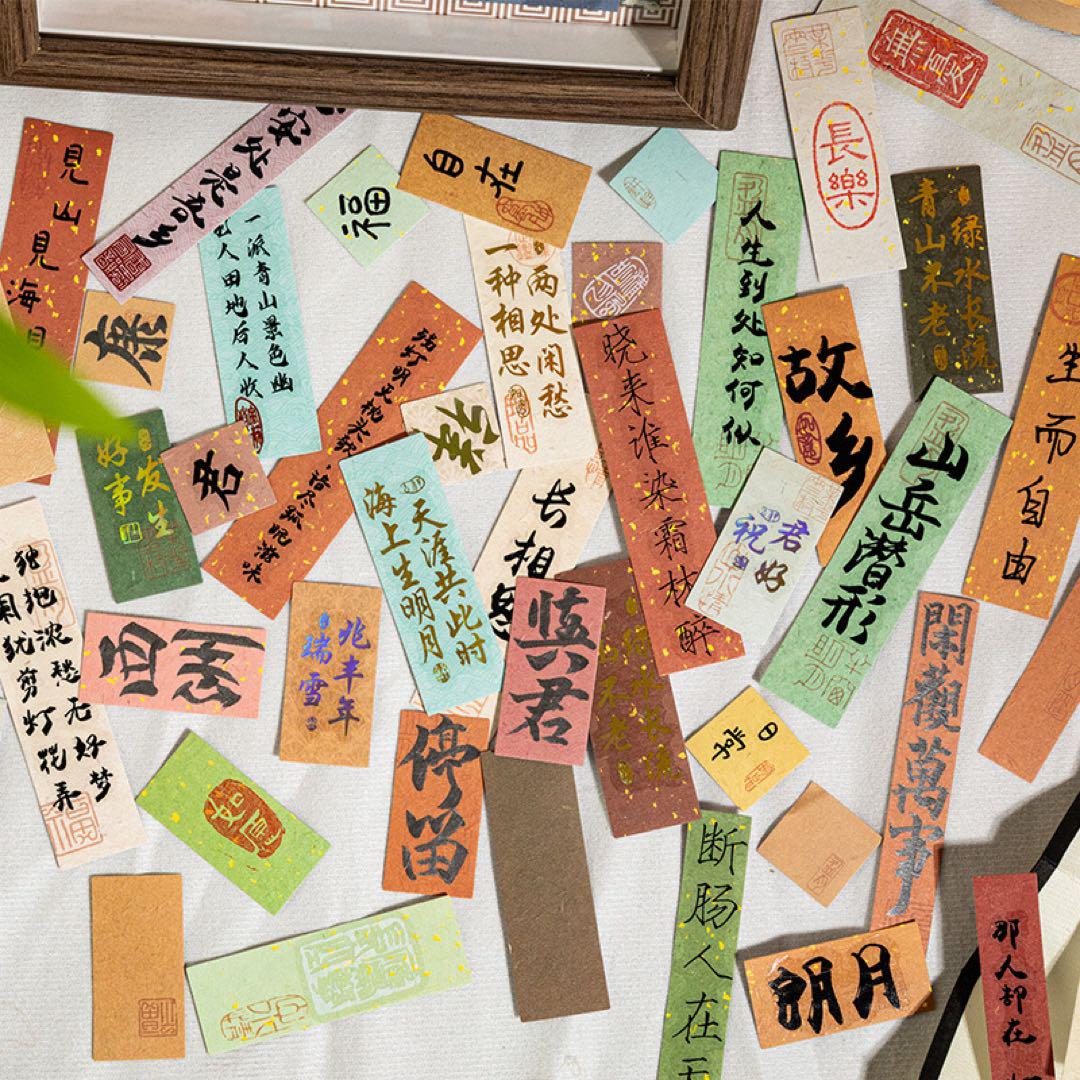 見山見海
自在
福
長樂
人生到处知何似
青山不老
绿水长流
一派青山景色幽
人田地后人收
两处闲愁
一种相思
康
故乡
晓来谁染霜林醉
生而自由
山岳潜形
好事
发生
君
天涯共此时
海上生明月
长相思
祝君好
慎君
西洲
兆丰年
瑞雪
停留
绿水长流
山不老
独抱浓愁无好梦
犹剪灯花弄
閑觀萬事
断肠人在
明月
那人却在